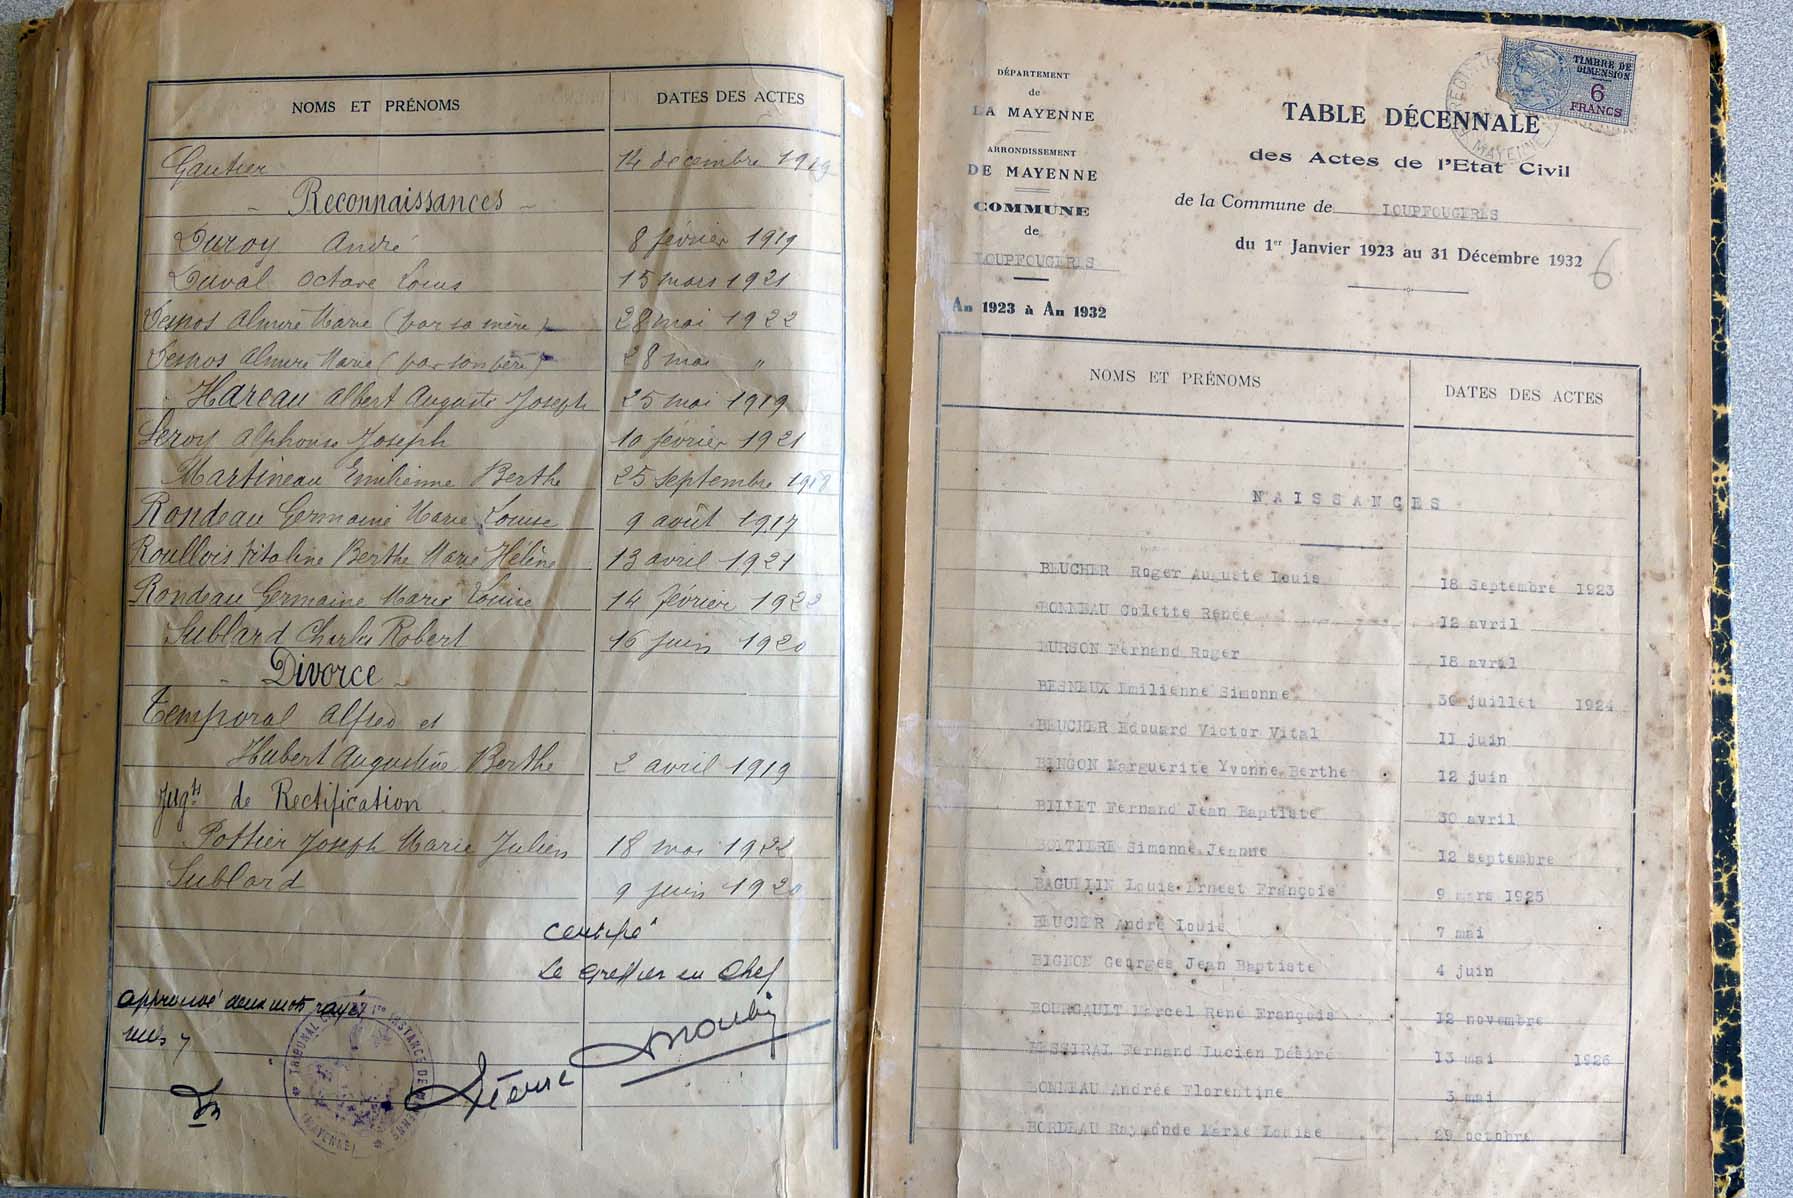 NOMS ET PRÉNOMS DATES DES ACTES
Gautier 14 décembre 1919
- Reconnaissances -
Duroy André 8 février 1919
Duval Octave Louis 15 mars 1921
Marie (par sa mère) 28 mai 1922
Marie (par son père) 28 mai "
Hareau Albert Auguste Joseph 25 mai 1919
Leroy Alphonse Joseph 10 février 1921
Martineau Emilienne Berthe 25 septembre 1918
Rondeau Germaine Marie Louise 9 août 1917
Roullois Vitaline Berthe Marie Hélène 13 avril 1921
Rondeau Germaine Marie Louise 14 février 1922
Sublard Charles Robert 16 juin 1920
- Divorce -
Temporal Alfred et
Hubert Augustine Berthe 2 avril 1919
Jugts de Rectification
Pottier Joseph Marie Julien 18 mai 1922
Sublard 9 juin 1920
certifié
Le Greffier en Chef
approuvé deux mots rayés
nuls
TRIBUNAL 1re INSTANCE DE
(MAYENNE)
DÉPARTEMENT
de
LA MAYENNE
ARRONDISSEMENT
DE MAYENNE
COMMUNE
de
LOUPFOUGERES
An 1923 à An 1932
TIMBRE DE
DIMENSION
6
FRANCS
MAYENNE
TABLE DÉCENNALE
des Actes de l'Etat Civil
de la Commune de LOUPFOUGERES
du 1er Janvier 1923 au 31 Décembre 1932
6
NOMS ET PRÉNOMS DATES DES ACTES
NAISSANCES
BEUCHER Roger Auguste Louis 18 Septembre 1923
BONNEAU Colette Renée 12 avril
BURSON Fernand Roger 18 avril
BESNEUX Emilienne Simonne 30 juillet 1924
BEUCHER Edouard Victor Vital 11 juin
BINGON Marguerite Yvonne Berthe 12 juin
BILLET Fernand Jean Baptiste 30 avril
BOITIERE Simonne Jeanne 12 septembre
BAGUELIN Louis Ernest François 9 mars 1925
BEUCHER André Louis 7 mai
BIGNON Georges Jean Baptiste 4 juin
BOURGAULT Marcel René François 12 novembre
BESSIRAL Fernand Lucien Désiré 13 mai 1926
BONNEAU Andrée Florentine 3 mai
BORDEAU Raymonde Marie Louise 29 octobre